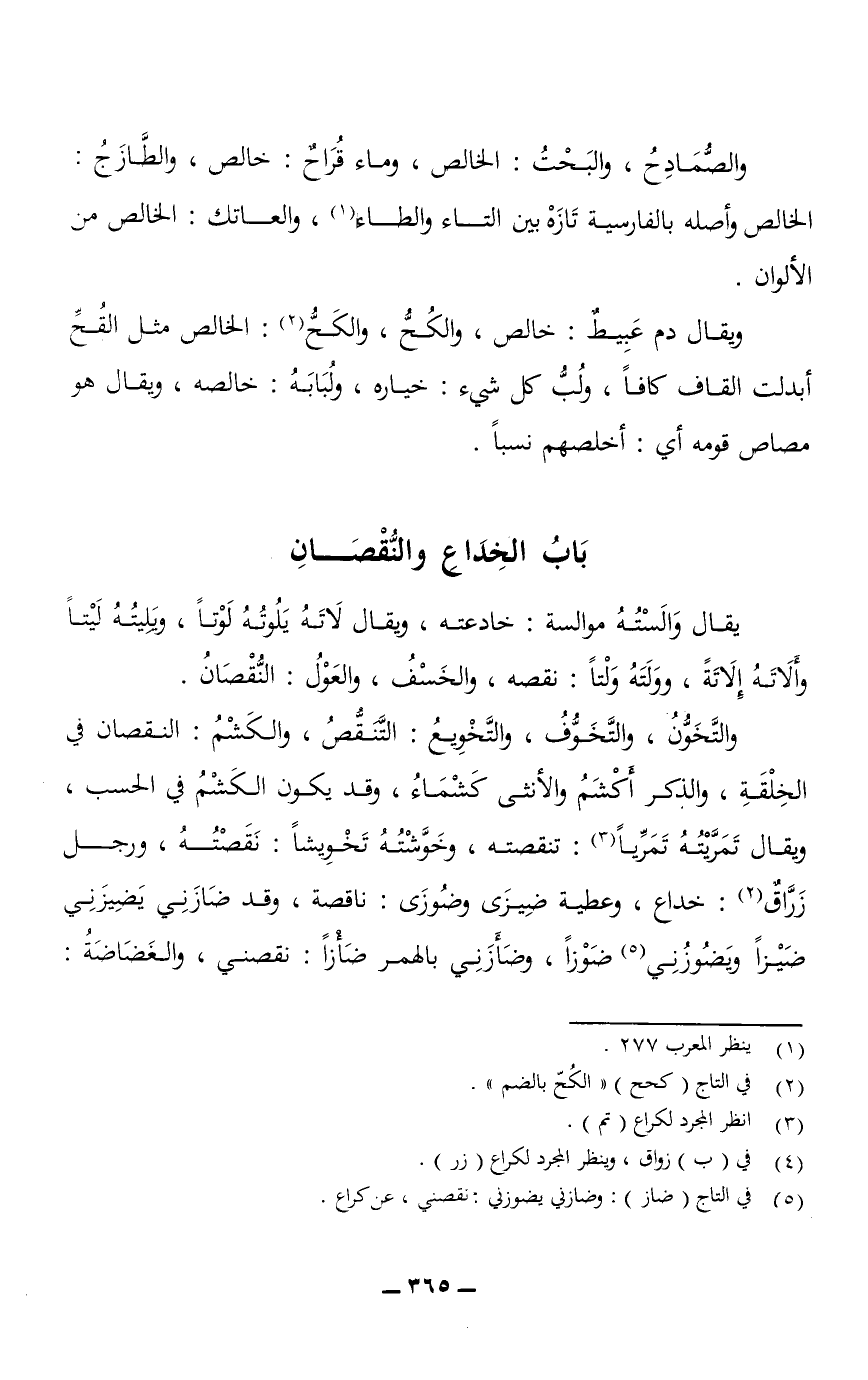 والصُّمَادِحُ ، والبَحْتُ : الخالص ، وماء قُرَاحٌ : خالص ، والطَّازَجُ :
الخالص وأصله بالفارسية تَازَهْ بين التاء والطاء(١) ، والعاتك : الخالص من
الألوان .
ويقال دم عَبِيطٌ : خالص ، والكُحُّ ، والكَحُّ(٢) : الخالص مثل القُحِّ
أبدلت القاف كافاً ، ولُبُّ كل شيء : خياره ، ولُبَابَهُ : خالصه ، ويقال هو
مصاص قومه أي : أخلصهم نسباً .
بَابُ الخِدَاعِ والنُّقْصَانِ
يقال وَالَسْتُهُ موالسة : خادعته ، ويقال لَاتَهُ يَلُوتُهُ لَوْتاً ، ويَلِيتُهُ لَيْتاً
وأَلَاتَهُ إِلَاتَةً ، ووَلَتَهُ وَلْتاً : نقصه ، والخَسْفُ ، والعَوْلُ : النُّقْصَانُ .
والتَّخَوُّنُ ، والتَّخَوُّفُ ، والتَّخْوِيعُ : التَّنَقُّصُ ، والكَشْمُ : النقصان في
الخِلْقَةِ ، والذكر أَكْشَمُ والأنثى كَشْمَاءُ ، وقد يكون الكَشْمُ في الحسب ،
ويقال تَمَرَّيْتُهُ تَمَرِّياً(٣) : تنقصته ، وخَوَّشْتُهُ تَخْوِيشاً : نَقَصْتُهُ ، ورجل
زَرَّاقٌ(٢) : خداع ، وعطية ضِيزَى وضُوزَى : ناقصة ، وقد ضَازَنِي يَضِيزَنِي
ضَيْزاً ويَضُوزُنِي(٥) ضَوْزاً ، وضَأَزَنِي بالهمر ضَأْزاً : نقصني ، والغَضَاضَةُ :
(١) ينظر المعرب ٢٧٧ .
(٢) في التاج ( كحح ) « الكُحّ بالضم » .
(٣) انظر المجرد لكراع ( تم ) .
(٤) في ( ب ) زواق ، وينظر المجرد لكراع ( زر ) .
(٥) في التاج ( ضاز ) : وضازني يضوزني : نقصني ، عن كراع .
ـ ٣٦٥ ـ